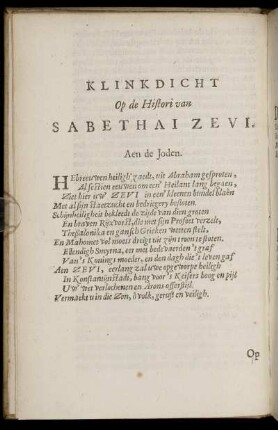 KLINKDICHT
Op de Histori van
SABETHAI ZEVI.
Aen de Joden.
HEbreeuwen heiligh zaedt, uit Abraham gesproten,
Al sestien eeuwen om een' Heilant lang begaen,
Ziet hier uw ZEVI in een' kleenen bundel blaên
Met al sijn staetzucht en bedriegery besloten.
Schijnheiligheit bekleedt de zijde van dien grooten
En braeven Rijxvorst
met sijn Profeet verzelt,
Thessalonika en gansch Grieken wetten stelt,
En Mahomet vol moeds dreigt uit zijn troon te stoten.
Ellendigh Smyrna, eer met
't graf
Van 's Konings moeder, en den dagh die 't leven gaf
Aen ZEVI, eerlang zal uw opgeworpe heiligh
In Konstantijnstadt, bang voor 's Keisers boog en pijl
Uw Wet verlochenen en Arons offerstijl.
Vermaekt u in die Zon, ô volk, gerust en veiligh.
Op